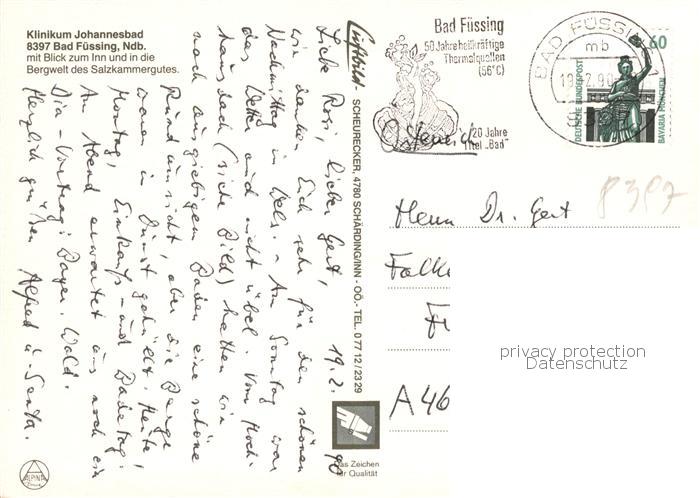 Klinikum Johannesbad
8397 Bad Füssing, Ndb.
mit Blick zum Inn und in die
Bergwelt des Salzkammergutes.
19.2.90
Liebe Rosi, lieber Gert,
wir danken Euch sehr für den schönen
Nachmittag in Wels. - Am Sonntag war
das Wetter auch nicht übel. Vom Hoch-
hausdach (siehe Bild) hatten wir
nach ausgiebigem Baden eine schöne
Rundumsicht, aber die Berge
waren in Dunst gehüllt. Heute,
Montag, Einkaufs- und Badetag.
Am Abend erwartet uns noch ein
Dia-Vortrag: Bayer. Wald.
Herzlich grüßen Alfred u.
Luftbild - SCHEURECKER, 4780 SCHÄRDING/INN - OÖ. - TEL. 0 77 12 / 23 29
Das Zeichen
für Qualität
ALPINA
Bad Füssing
50 Jahre heilkräftige
Thermalquellen
(56°C)
20 Jahre
"Bad"
BAD FÜSSING 1
mb
60
DEUTSCHE BUNDESPOST
BAVARIA MÜNCHEN
Österreich
8397
Herrn Dr. Gert
A 46
privacy protection
Datenschutz